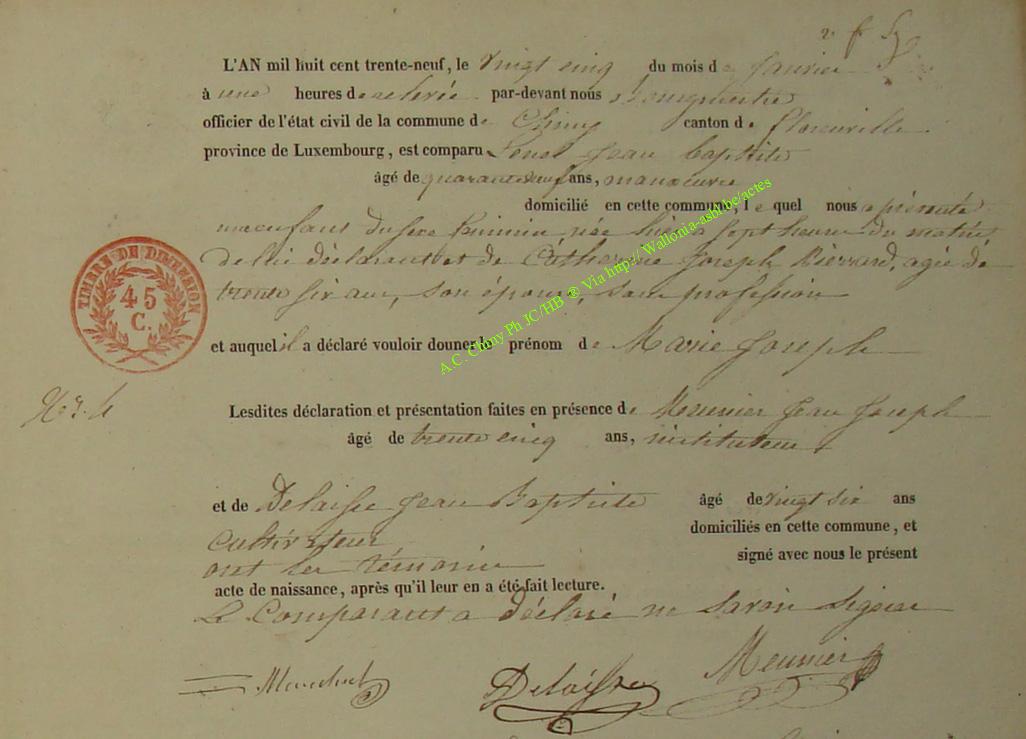 2e f
L'AN mil huit cent trente-neuf, le vingt cinq du mois de janvier
à une heures de relevée par-devant nous Bourgmestre
officier de l'état civil de la commune de Chiny canton de florenville
province de Luxembourg, est comparu Jean Baptiste
âgé de quarante neuf ans, manœuvre
domicilié en cette commune, le quel nous a présenté
un enfant du sexe féminin née hier a sept heures du matin
de lui déclarant et de Catherine Joseph Pierrard, agée de
trente six ans, son épouse, sans profession
et auquel il a déclaré vouloir donner le prénom de Marie Joseph
No. 4
Lesdites déclaration et présentation faites en présence de Meunier Jean Joseph
âgé de trente cinq ans, instituteur
et de Delaisse Jean Baptiste âgé de vingt six ans
cultivateur domiciliés en cette commune, et
ont les témoins signé avec nous le présent
acte de naissance, après qu'il leur en a été fait lecture.
Le Comparant a déclaré ne savoir signer
Delaisse Meunier
TIMBRE DE DIMENSION
45
C.
A.C. Chiny Ph JC/HB ® Via http:// Wallonia-asbl.be/actes